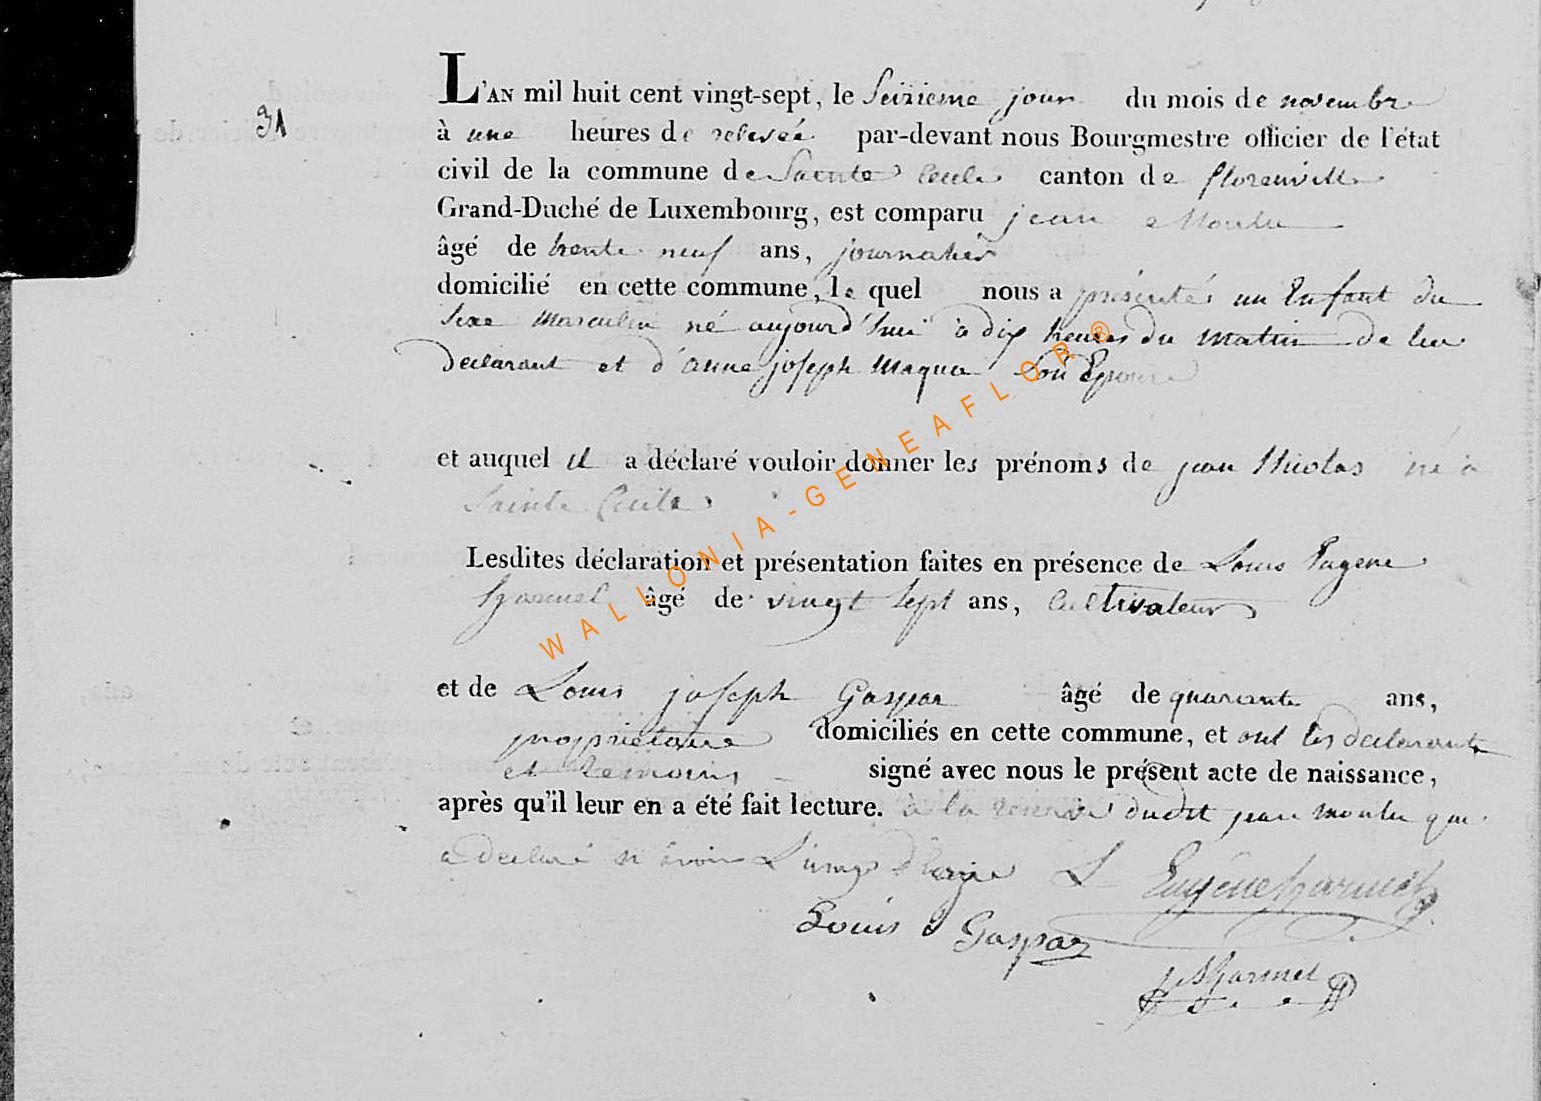 31
L'AN mil huit cent vingt-sept, le Seizieme jour du mois de novembre
à une heures de relevée par-devant nous Bourgmestre officier de l'état
civil de la commune de Sainte Cecile canton de florenville
Grand-Duché de Luxembourg, est comparu jean Moulu
âgé de trente neuf ans, journalier
domicilié en cette commune, le quel nous a présenté un Enfant du
Sexe Masculin né aujourd'hui à dix heures du matin de lui
declarant et d'anne joseph Maqua Son Epouse
et auquel il a déclaré vouloir donner les prénoms de jean Nicolas né à
Sainte Cecile
Lesdites déclaration et présentation faites en présence de Louis Eugene
âgé de vingt Sept ans, Cultivateur
et de Louis joseph Gaspar âgé de quarante ans,
propriétaire domiciliés en cette commune, et ont les declarants
et temoins signé avec nous le présent acte de naissance,
après qu'il leur en a été fait lecture. à la reserve dudit jean moulu qui
a declaré n'avoir L'usage d'
L Eugène
Louis J Gaspar
WALLONIA-GENEAFLOR®